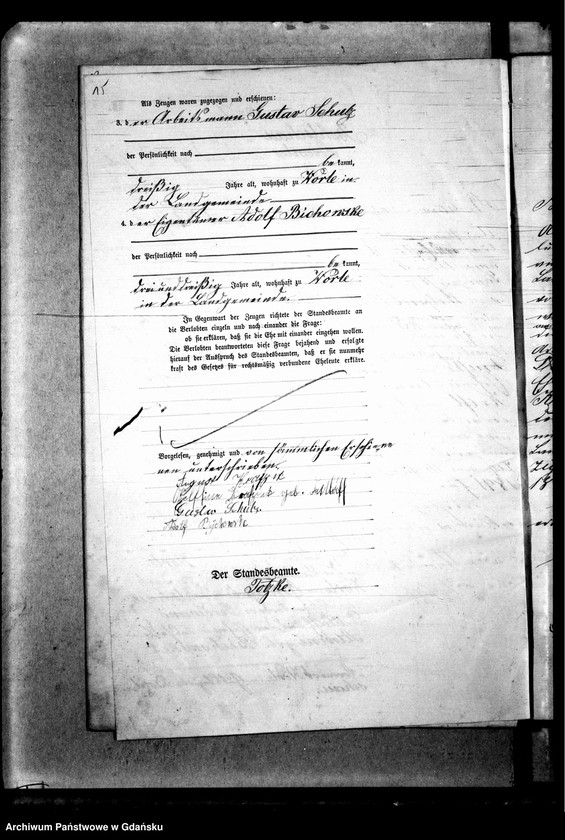 15
Als Zeugen waren zugezogen und erschienen:
3. der Arbeitsmann Gustav Schulz
der Persönlichkeit nach
be kannt,
dreißig Jahre alt, wohnhaft zu Worle in
der Landgemeinde
4. der Eigentümer Adolf Bichowske
der Persönlichkeit nach
be kannt,
dreiunddreißig Jahre alt, wohnhaft zu Worle
in der Landgemeinde.
In Gegenwart der Zeugen richtete der Standesbeamte an
die Verlobten einzeln und nach einander die Frage:
ob sie erklären, daß sie die Ehe mit einander eingehen wollen.
Die Verlobten beantworteten diese Frage bejahend und erfolgte
hierauf der Ausspruch des Standesbeamten, daß er sie nunmehr
kraft des Gesetzes für rechtsmäßig verbundene Eheleute erkläre.
Vorgelesen, genehmigt und von sämmtlichen Erschiene
nen unterschrieben.
August
geb.
Gustav Schulz
Adolf
Der Standesbeamte.
Totzke.
Archiwum Państwowe w Gdańsku